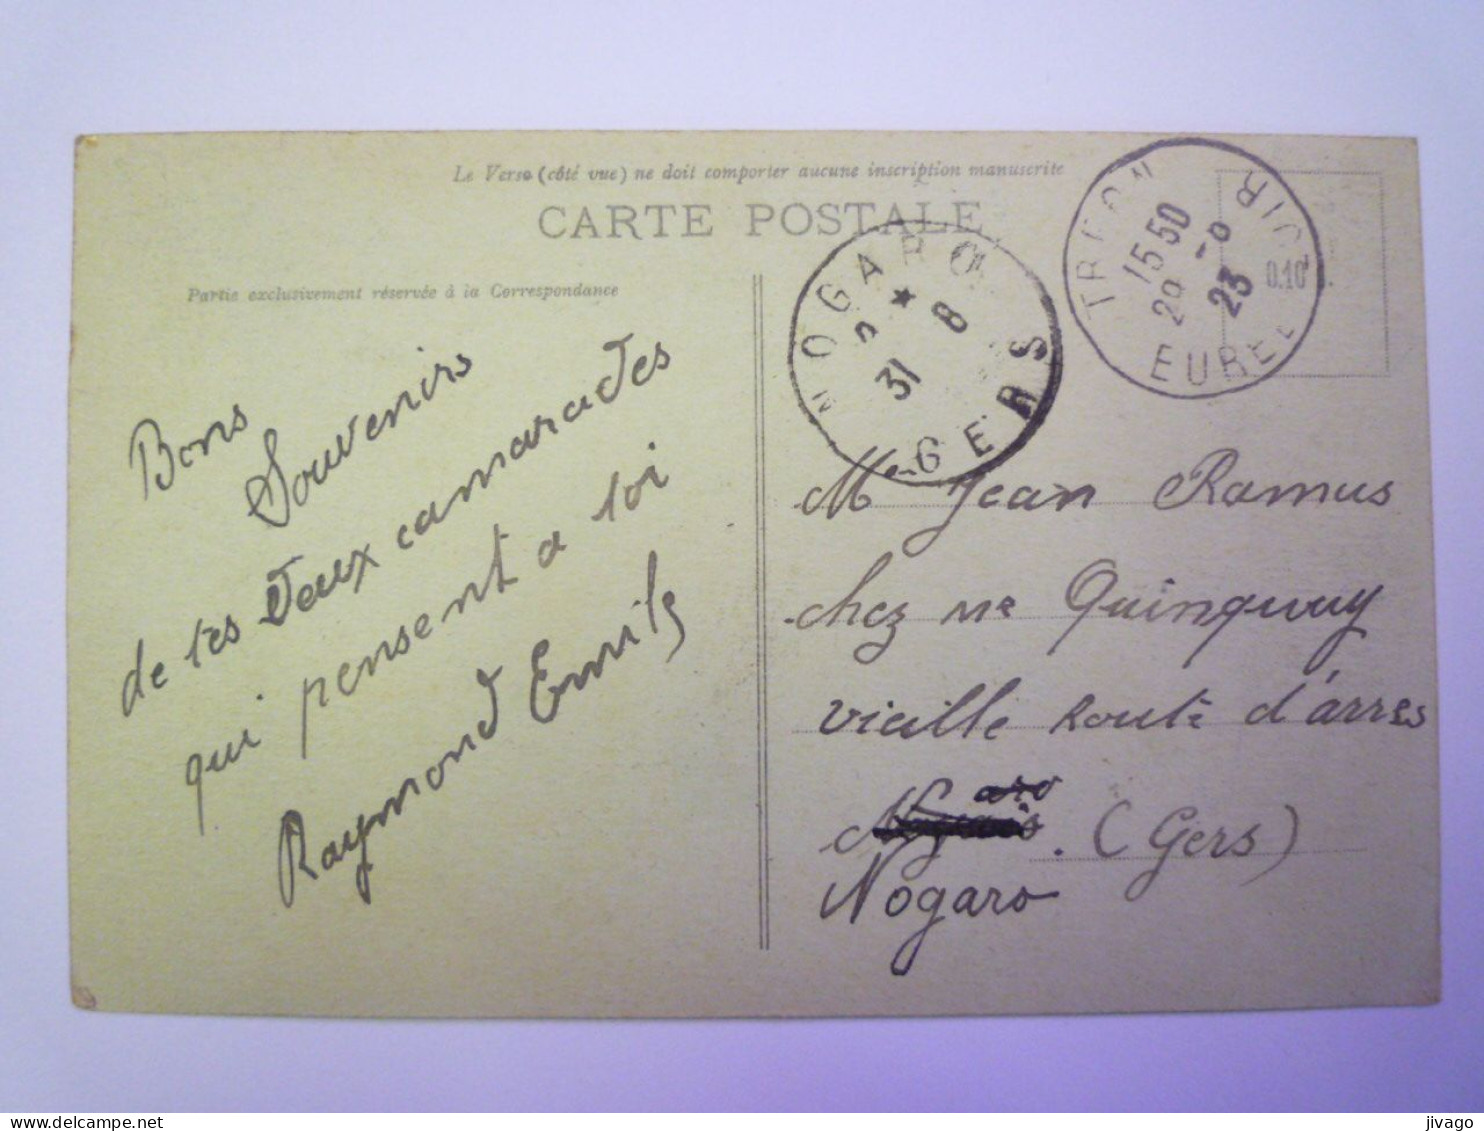 Le Verso (côté vue) ne doit comporter aucune inscription manuscrite
CARTE POSTALE
Partie exclusivement réservée à la Correspondance
Bons
Souvenirs
de tes deux camarades
qui pensent a toi
Raymond Emile
NOGARO
* 8
31
GERS
TREON
15 50
29 -8
23
EURE
LOIR
0.10
M Jean Ramus
chez Mr Quinquuy
vieille Route d'arres
aro
(Gers)
Nogaro
jivago
delcampe.net